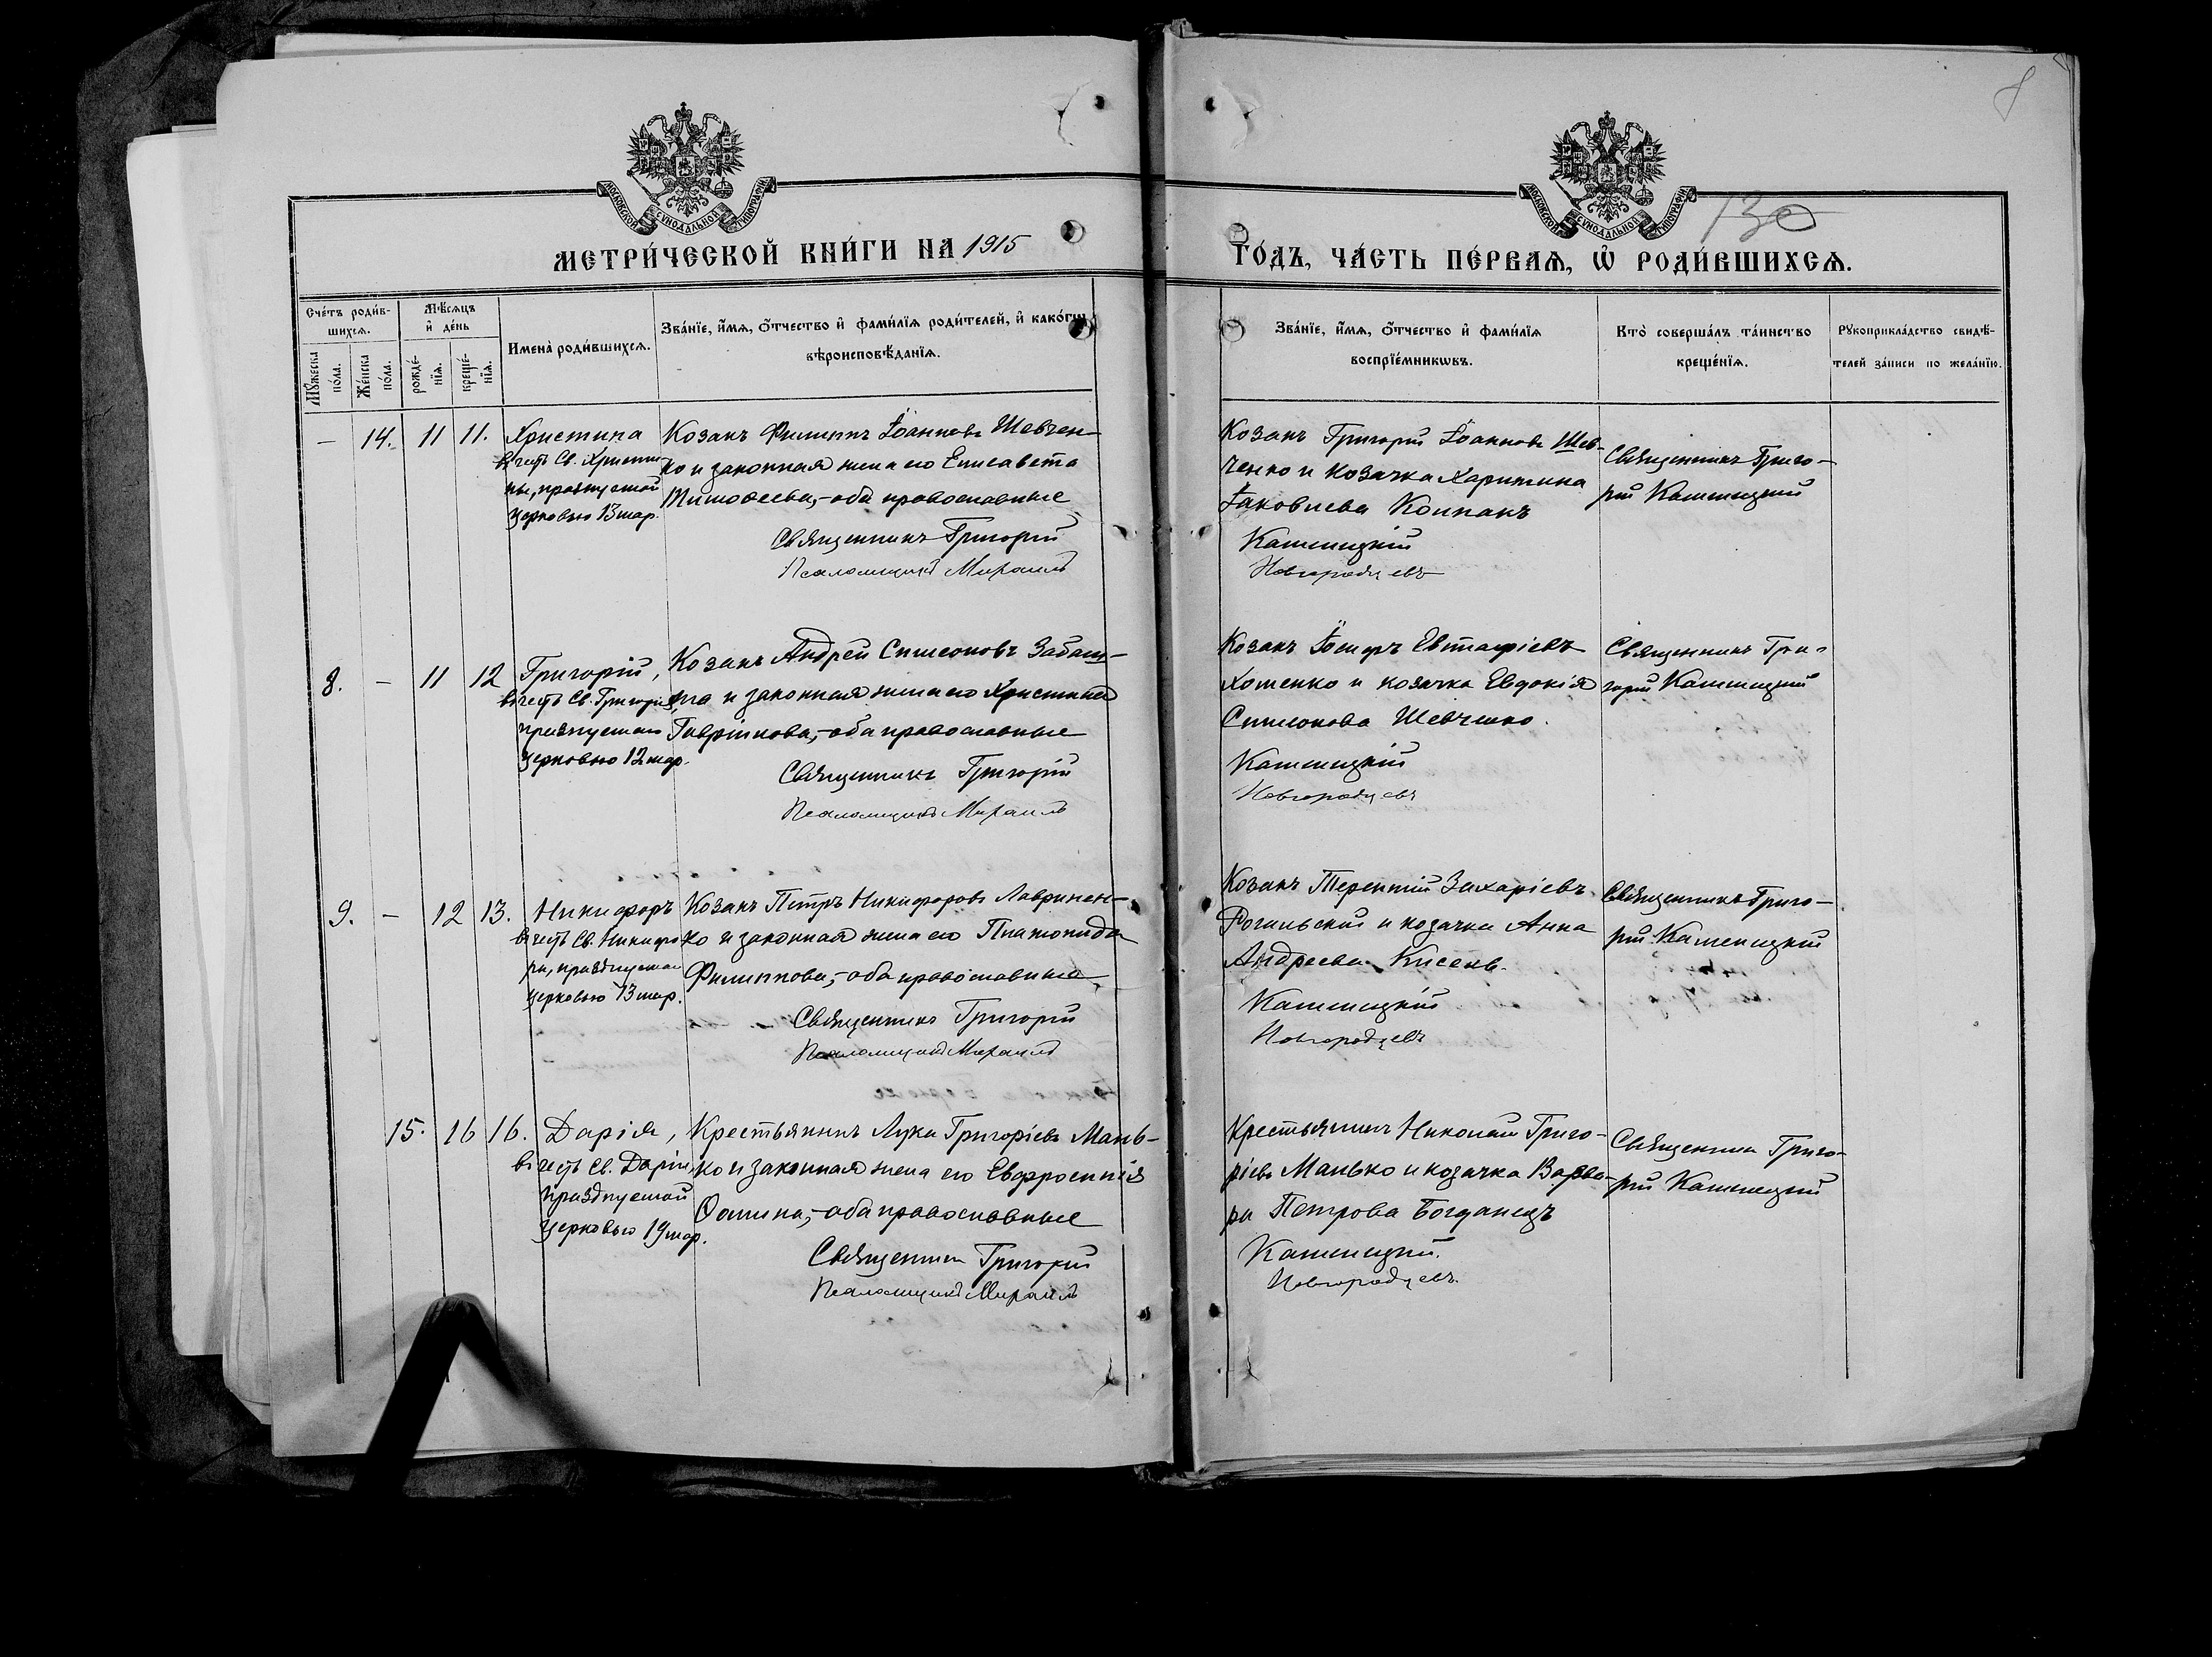 8
МОСКОВСКОЙ СѴНОДАЛЬНОЙ ТИПОГРАФІИ
МОСКОВСКОЙ СѴНОДАЛЬНОЙ ТИПОГРАФІИ
130
МЕТРИ́ЧЕСКОЙ КНИ́ГИ НА 1915
ГО́ДЪ, ЧА́СТЬ ПЕ́РВАѦ, Ѡ҆ РОДИ́ВШИХСѦ.
Сче́тъ роди́в-
шихсѧ.
Мꙋ́жеска
по́ла.
Же́нска
по́ла.
Мѣ́сѧцъ
и҆ де́нь
рожде́-
нїѧ.
креще́-
нїѧ.
Имена̀ роди́вшихсѧ.
Зва́нїе, и҆́мѧ, ѻ҆́тчество и҆ фами́лїѧ роди́телей, и҆ како́гѡ
вѣроисповѣ́данїѧ.
Зва́нїе, и҆́мѧ, ѻ҆́тчество и҆ фами́лїѧ
воспрїе́мникѡвъ.
Кто̀ соверша́лъ та́инство
креще́нїѧ.
Рꙋкоприкла́дство свидѣ́-
телей за́писи по жела́нїю.
— 14. 11 11.
Христина
въ честь Св. Христи-
ны, празнуемой
Церковью 13 мар.
Козакъ Филиппъ Іоанновъ Шевчен-
ко и законная жена его Елисавета
Тимоѳеева,- оба православные
Священникъ Григорій
Псаломщикъ Михаилъ
Козакъ Григорій Іоанновъ Шев-
ченко и козачка Харитина
Іаковлева Колпакъ
Каменицкій
Новгородцевъ
Священникъ Григо-
рій Каменицкій
8. — 11 12
Григорій,
въ честь Св. Григорія,
празнуемаго
Церковью 12 мар.
Козакъ Андрей Симеоновъ Забаш-
та и законная жена его Христина
Гавріилова,- оба православные
Священникъ Григорій
Псаломщикъ Михаилъ
Козакъ Іосифъ Евстафіевъ
Хоменко и козачка Евдокія
Симеонова Шевченко.
Каменицкій
Новгородцевъ
Священникъ Гри-
горій Каменицкій
9. — 12 13.
Никифоръ
въ честь Св. Никифо
ра, празднуемаго
Церковью 13 мар.
Козакъ Петръ Никифоровъ Лавринен-
ко и законная жена его Платонида
Филиппова,- оба православные
Священникъ Григорій
Псаломщикъ Михаилъ
Козакъ Терентій Захаріевъ
Рогильскій и козачка Анна
Андреева Кисель.
Каменицкій
Новгородцевъ
Священникъ Григо-
рій Каменицкій
15. 16 16.
Дарія,
въ честь Св. Даріи,
празднуемой
Церковью 19 мар.
Крестьянинъ Лука Григорьевъ Мань-
ко и законная жена его Евфросинія
Ѳомина,- оба православные
Священникъ Григорій
Псаломщикъ Михаилъ
Крестьянинъ Николай Григо-
рьевъ Манько и козачка Варва-
ра Петрова Богданецъ
Каменицкій.
Новгородцевъ.
Священникъ Григо-
рій Каменицкій